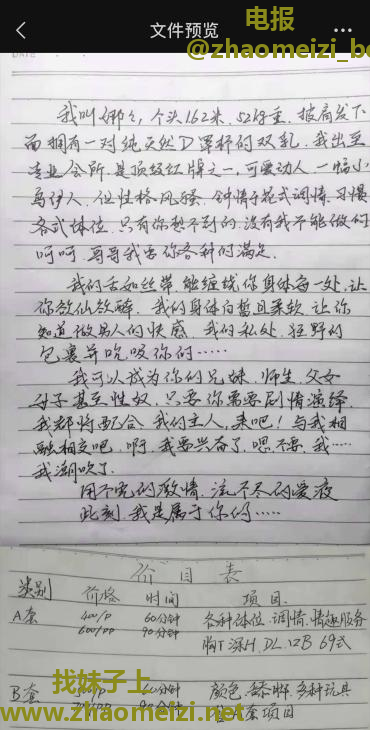 文件预览
电报
@zhaomeizi_bo
DATE
我叫娜々,个头162米,52公斤,披肩发下
面拥有一对纯天然D罩杯的双乳,我出至
专业会所,是顶级红牌之一,可爱动人,一幅小
鸟依人,但性格风骚,钟情于花式调情,习惯
各式体位,只有你想不到的,没有我不能做的
呵呵,哥哥我要你各种的满足.
我的舌如丝带,能缠绕你身体每一处,让
你欲仙欲醉,我的身体白皙且柔软,让你
知道做男人的快感,我的私处,狂野的
包裹并吮吸你的……
我可以成为你的兄妹,师生,父女
母子甚至性奴,只要你需要剧情演绎,
我都将配合,我的主人,来吧!与我相
融相交吧,啊,我要兴奋了,嗯不要,我…
我潮吹了.
用不完的激情,流不尽的爱液
此刻,我是属于你的……
价目表
类别 价格 时间 项目
A套 400/p 60分钟 各种体位,调情,情趣服务
600/pp 90分钟 胸T深H,DL,口B 69式
B套 60分钟 颜色, 多种玩具
90分钟 A套项目
找妹子上
www.zhaomeizi.net